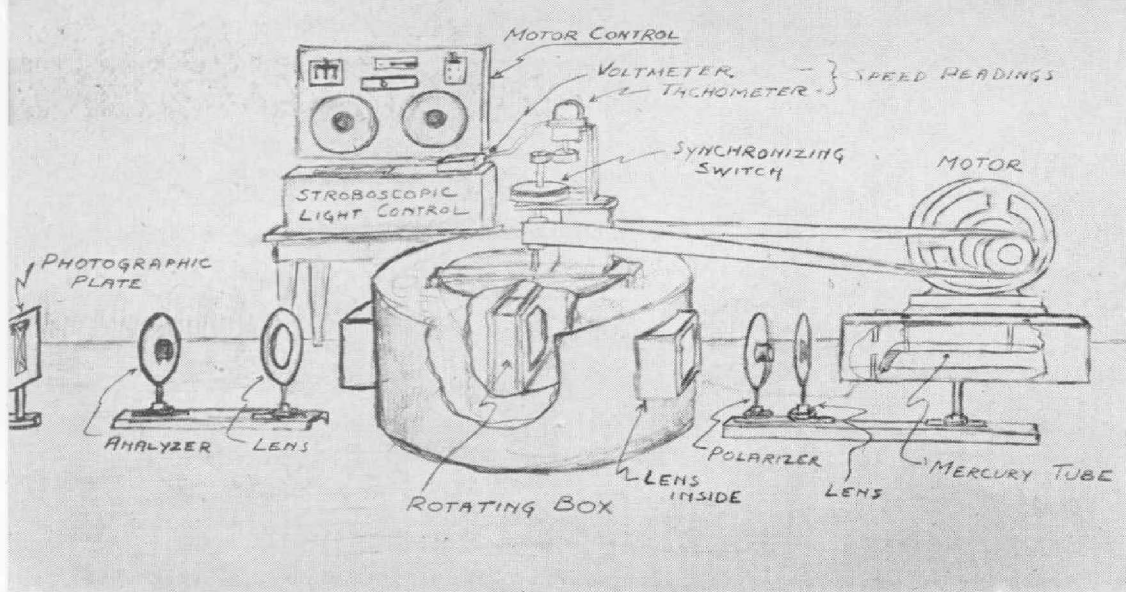 MOTOR CONTROL
VOLTMETER
TACHOMETER
SPEED READINGS
SYNCHRONIZING
SWITCH
MOTOR
STROBOSCOPIC
LIGHT CONTROL
PHOTOGRAPHIC
PLATE
ANALYZER
LENS
ROTATING BOX
LENS
INSIDE
POLARIZER
LENS
MERCURY TUBE